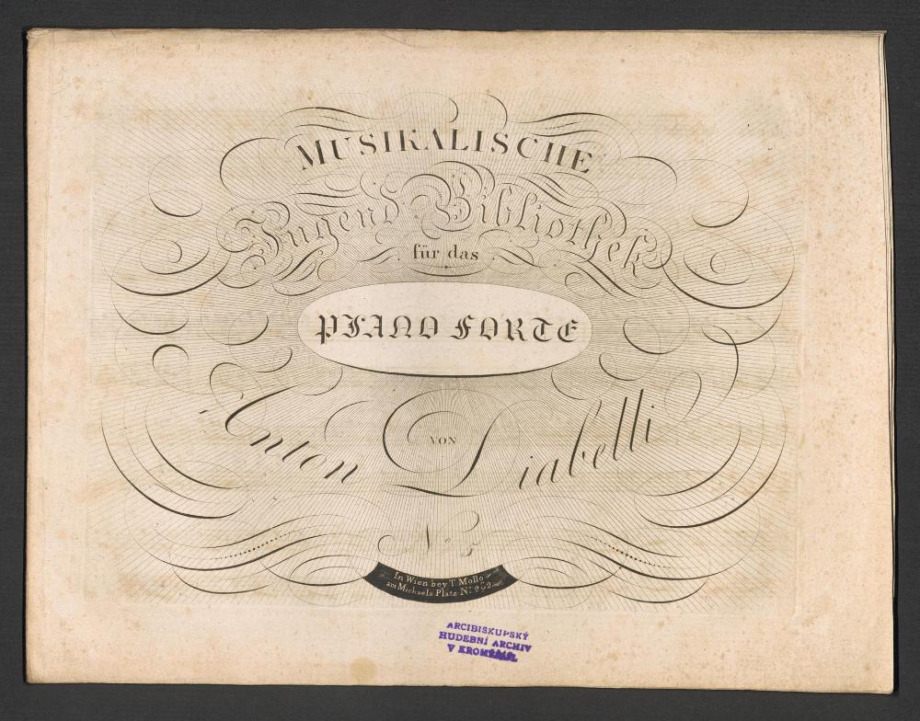 MUSIKALISCHE
Jugend Bibliothek
für das
PIANO FORTE
VON
Anton Diabelli
In Wien bey T. Mollo
am Michaels Platz N.º
ARCIBISKUPSKÝ
HUDEBNÍ ARCHIV
V